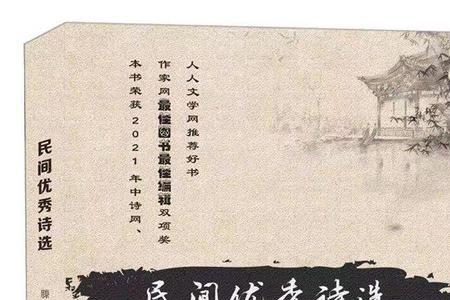 人人文学网推荐好书
作家网最佳图书最佳编辑双项奖
本书荣获2021年中诗网、
民间优秀诗选
民间优秀诗选